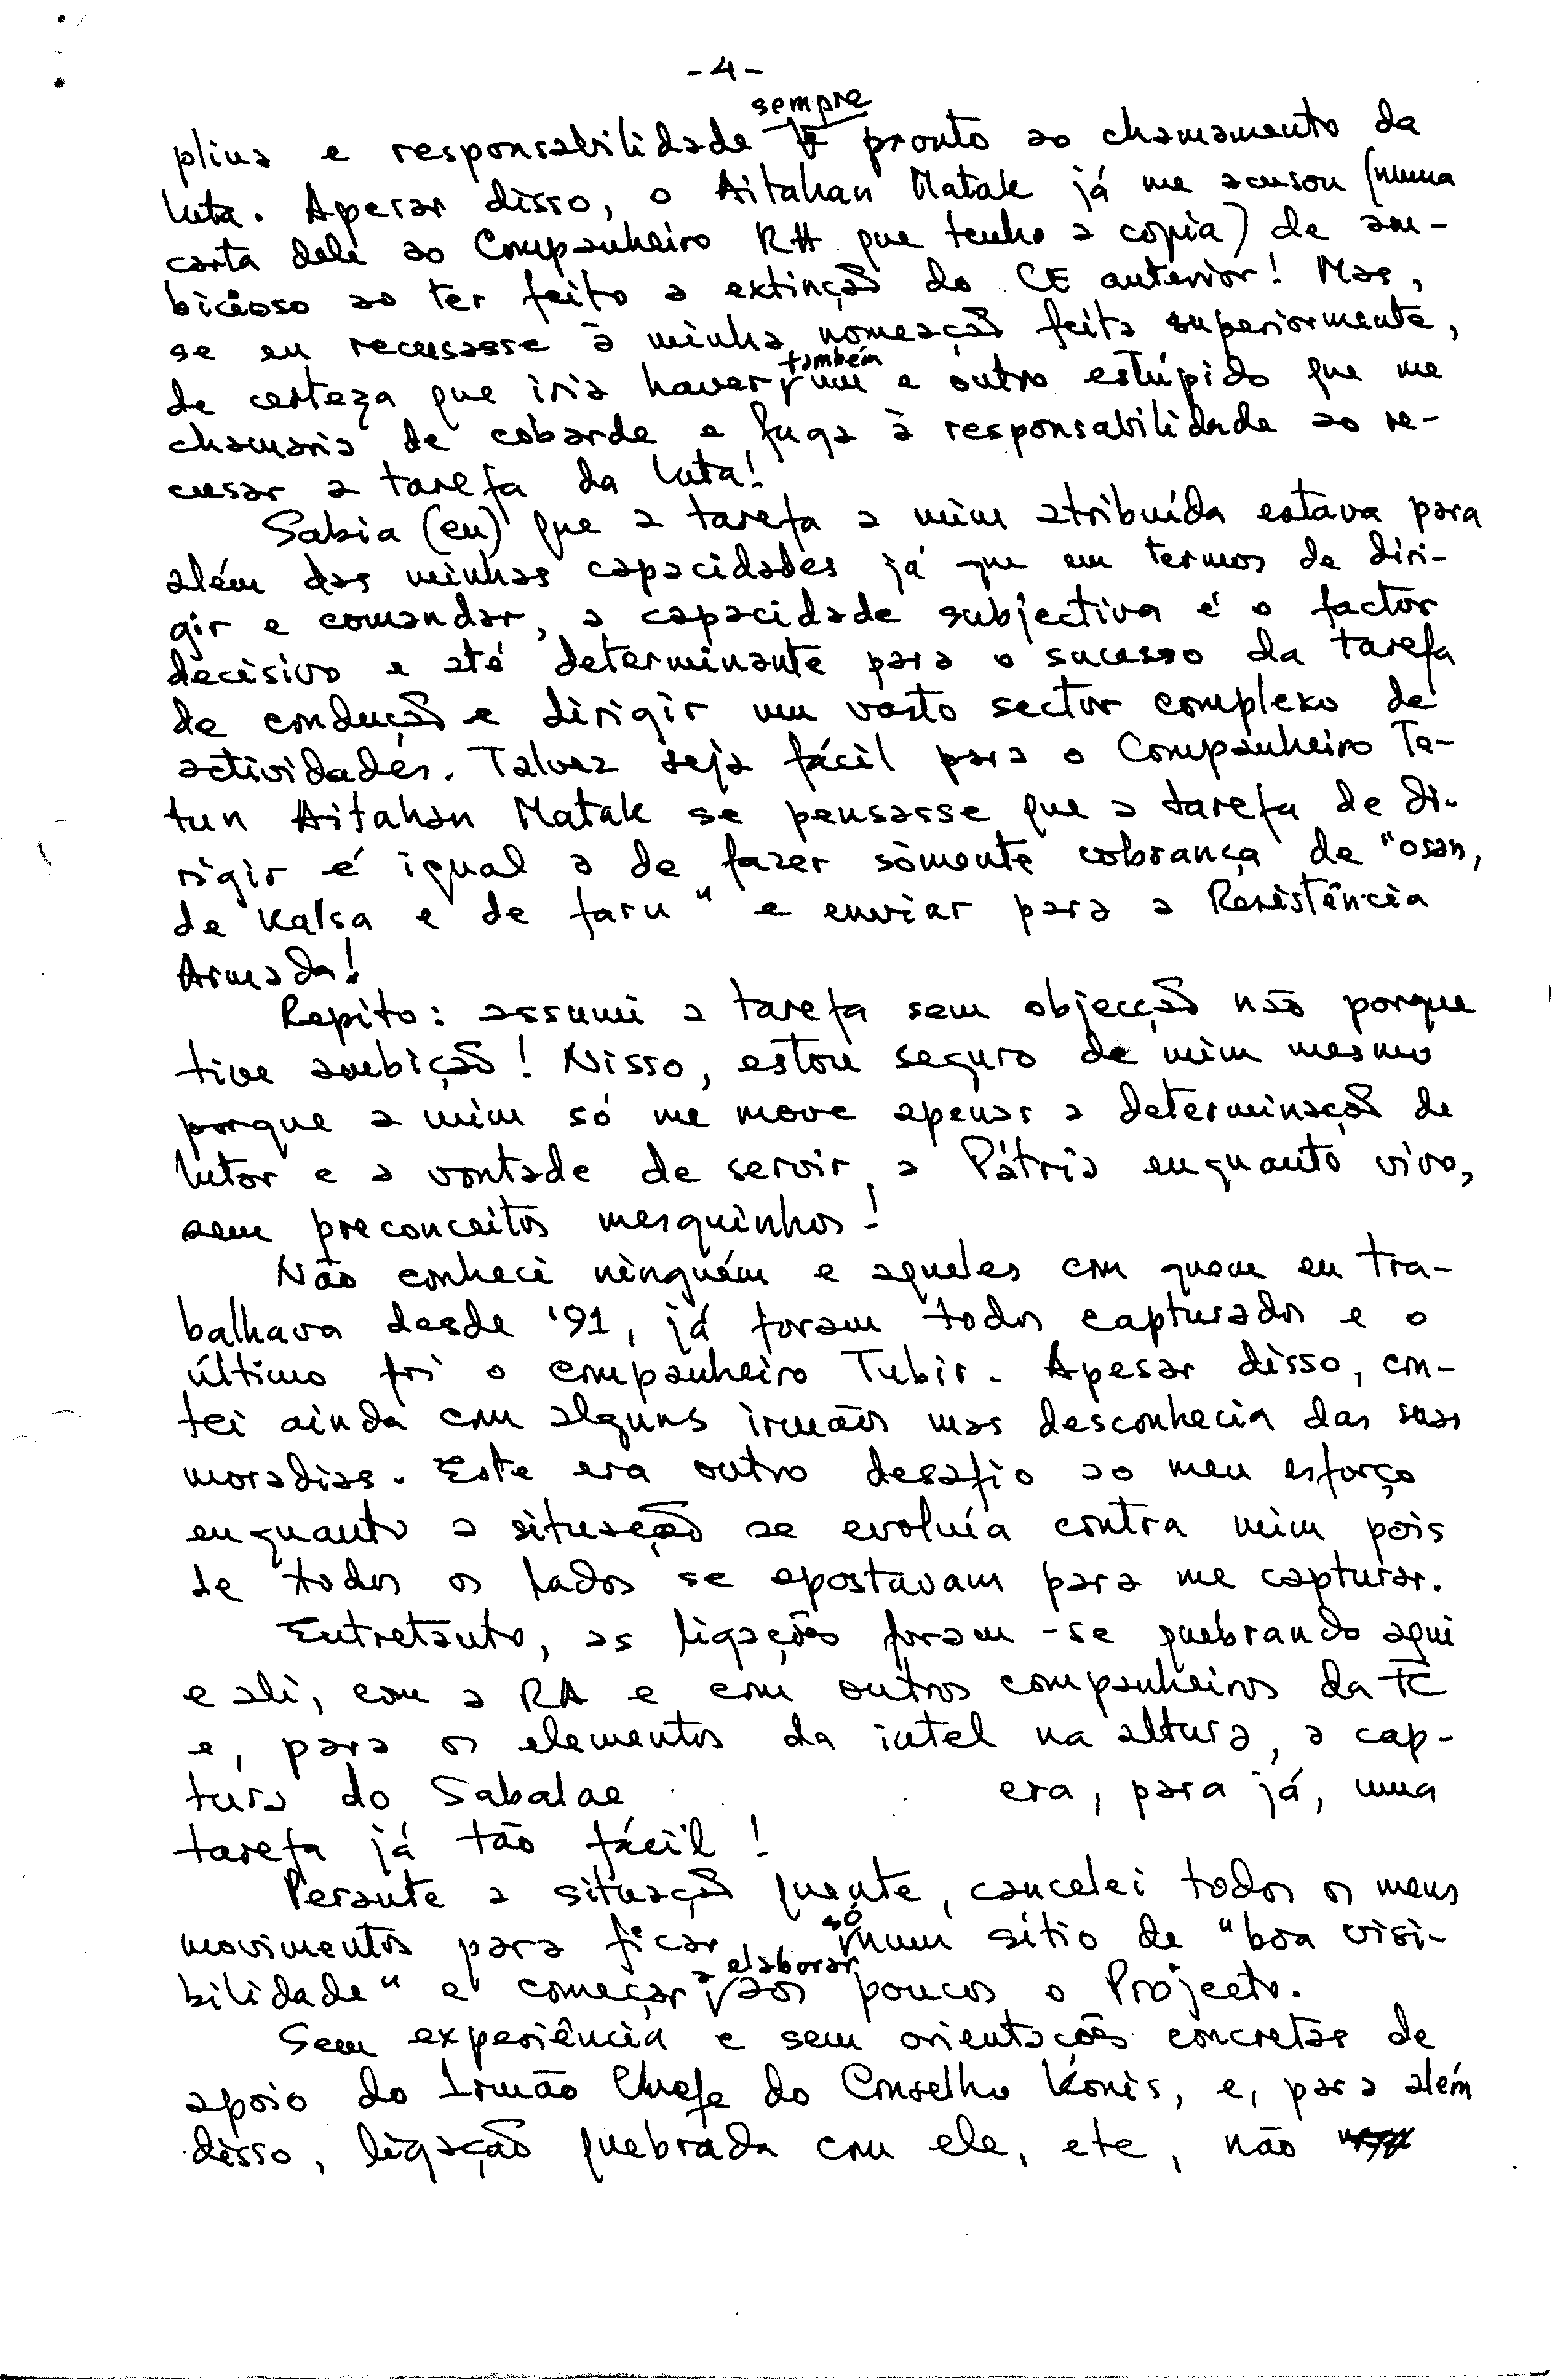 - 4 -
plina e responsabilidade e sempre pronto ao chamamento da
luta. Apesar disso, o Aitahan Matak já me acusou (numa
carta dele ao Companheiro RH que tenho a copia) de am-
bicioso ao ter feito a extinção do CE anterior! Mas,
se eu recusasse à minha nomeação feita superiormente,
de certeza que iria haver também um e outro estúpido que me
chamaria de cobarde e fuga à responsabilidade ao re-
cusar a tarefa da luta!
Sabia (eu) que a tarefa a mim atribuída estava para
além das minhas capacidades já que em termos de diri-
gir e comandar, a capacidade subjectiva é o factor
decisivo e até determinante para o sucesso da tarefa
de condução e dirigir um vasto sector complexo de
actividades. Talvez seja fácil para o Companheiro Te-
tun Aitahan Matak se pensasse que a tarefa de di-
rigir é igual a de fazer sòmente cobrança de "osan,
de kalsa e de faru" e enviar para a Resistência
Armada!
Repito: assumi a tarefa sem objecção não porque
tive ambição! Nisso, estou seguro de mim mesmo
porque a mim só me move apenas a determinação de
lutar e a vontade de servir a Pátria enquanto vivo,
sem preconceitos mesquinhos!
Não conheci ninguém e aqueles com quem eu tra-
balhava desde '91, já foram todos capturados e o
último foi o companheiro Tubir. Apesar disso, con-
tei ainda com alguns irmãos mas desconhecia das suas
moradias. Este era outro desafio ao meu esforço
enquanto a situação se evoluía contra mim pois
de todos os lados se apostavam para me capturar.
Entretanto, as ligações foram-se quebrando aqui
e ali, com a RA e com outros companheiros da FC
e, para os elementos da intel na altura, a cap-
tura do Sabalae era, para já, uma
tarefa já tão fácil!
Perante a situação quente, cancelei todos os meus
movimentos para ficar só num sítio de "boa visi-
bilidade" e começar a elaborar aos poucos o Projecto.
Sem experiência e sem orientações concretas de
apoio do Irmão Chefe do Conselho Konis, e, para além
disso, ligação quebrada com ele, etc, não